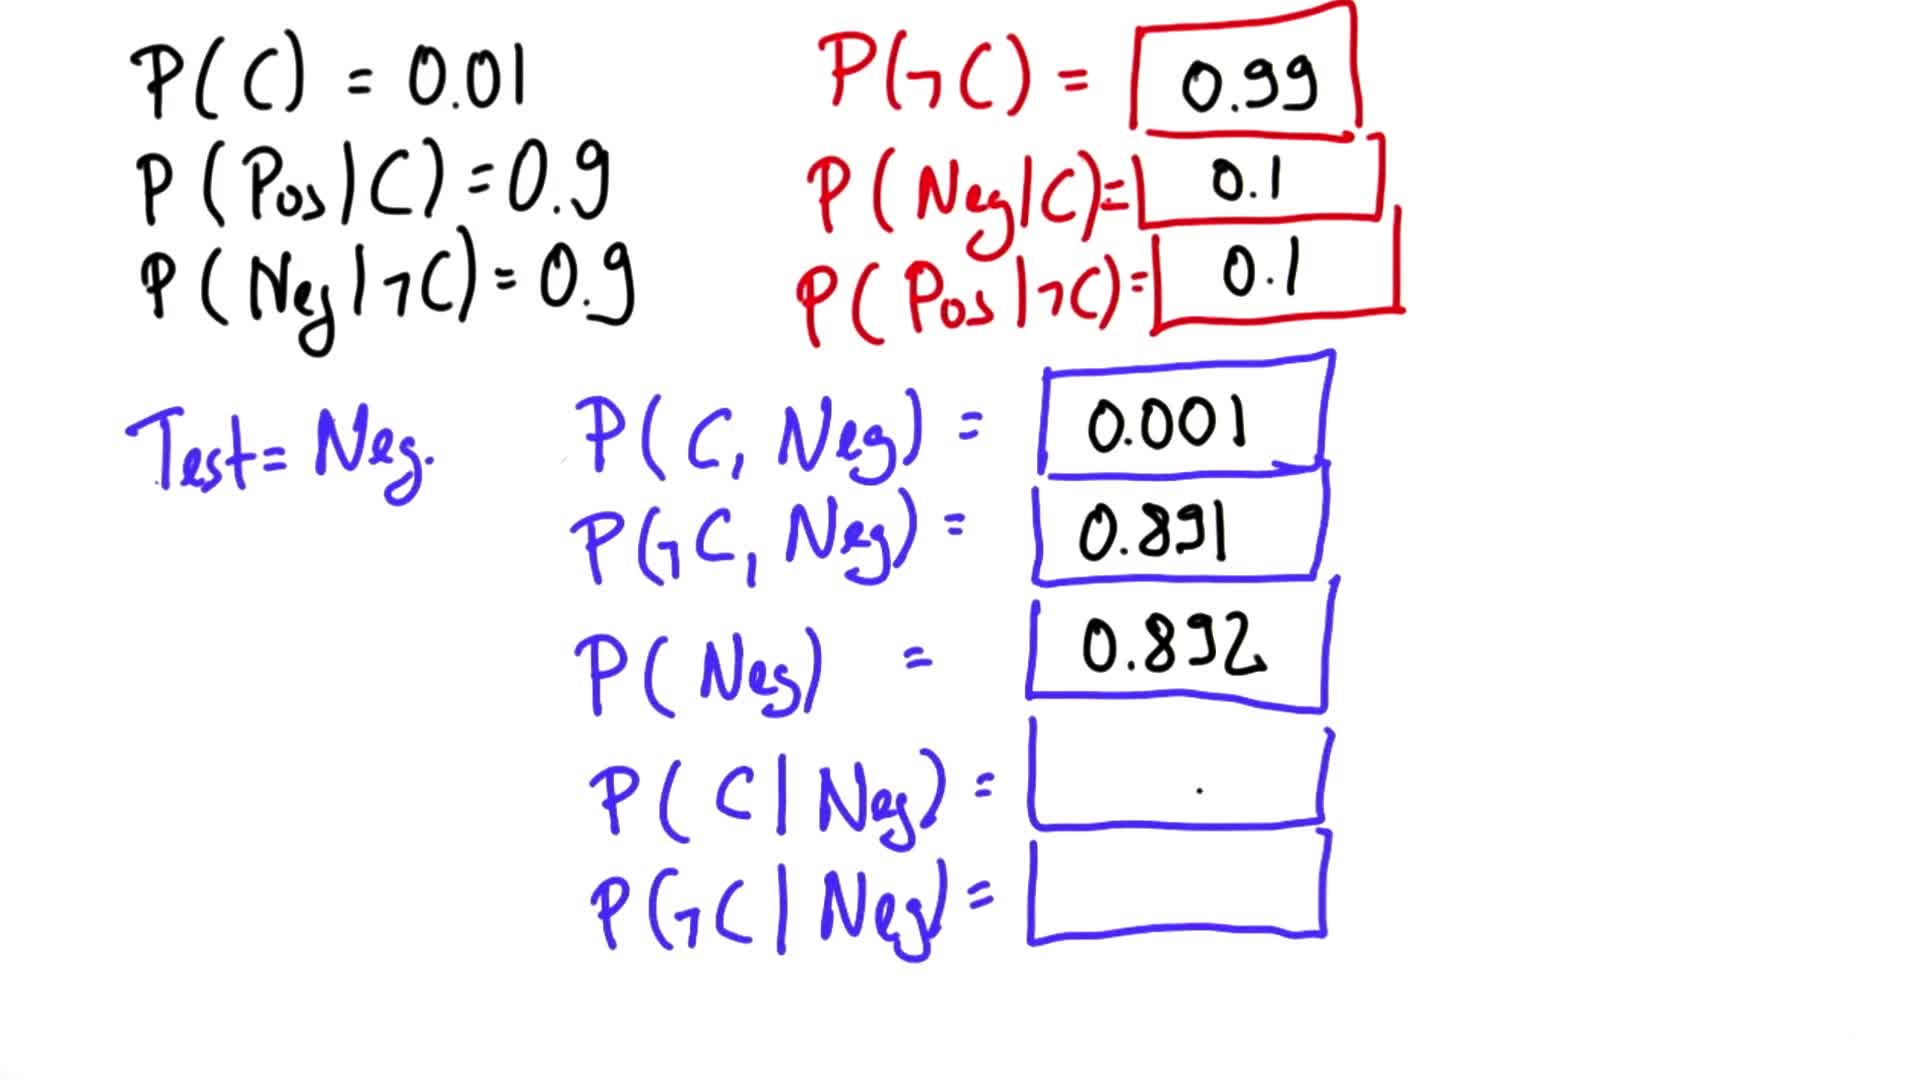 P(C) = 0.01
P(¬C) = 0.99
P(Pos|C) = 0.9
P(Neg|C) = 0.1
P(Neg|¬C) = 0.9
P(Pos|¬C) = 0.1
Test = Neg.
P(C, Neg) = 0.001
P(¬C, Neg) = 0.891
P(Neg) = 0.892
P(C|Neg) =
P(¬C|Neg) =